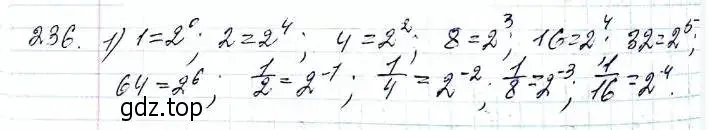 236. 1) 1=2⁶; 2=2⁴; 4=2²; 8=2³; 16=2⁴; 32=2⁵;
64=2⁶; 1/2=2⁻¹; 1/4=2⁻²; 1/8=2⁻³; 1/16=2⁻⁴.
gdz.top